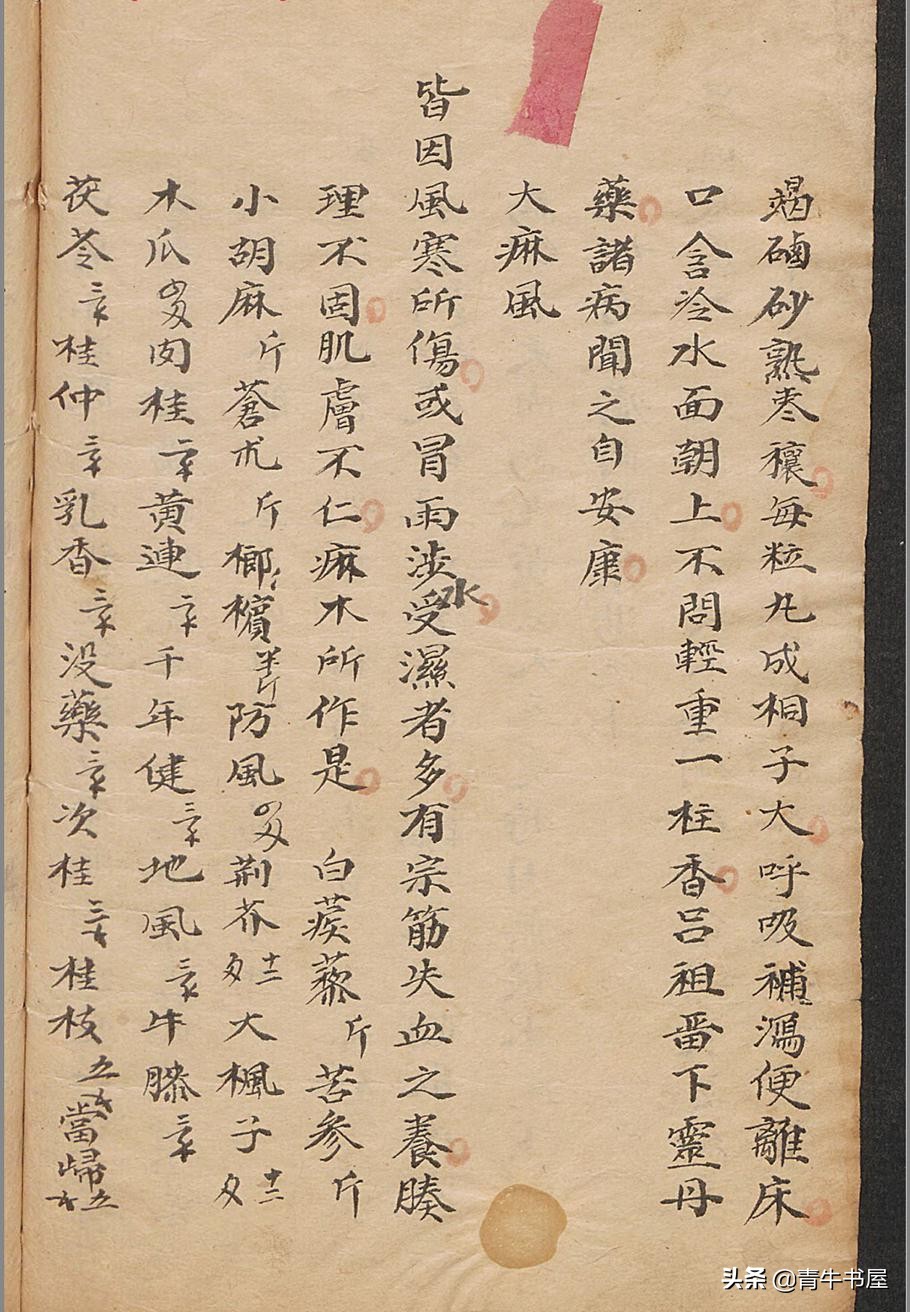 竭硇砂熟枣穰每粒丸成桐子大呼吸補瀉便離床
口含冷水面朝上不問輕重一柱香吕祖畱下靈丹
藥諸病聞之自安康
大痳風
皆因風寒所傷或冒雨涉水受濕者多有宗筋失血之養腠
理不固肌膚不仁痳木所作是 白蒺藜斤苦参斤
小胡麻斤蒼朮斤榔檳半斤防風四两荆芥十二两大楓子十二两
木瓜四两肉桂三子黄連二子千年健三子地風三子牛膝三子
茯苓三子桂仲三子乳香三子没藥三子次桂三子桂枝五子當歸五子
头条 @青牛书屋